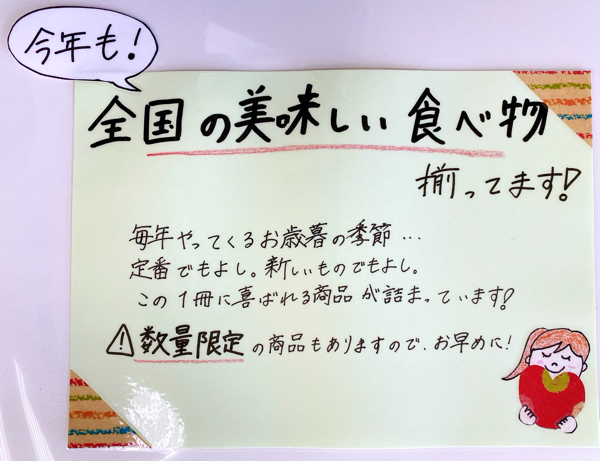 今年も!
全国の美味しい食べ物
揃ってます!
毎年やってくるお歳暮の季節…
定番でもよし。新しいものでもよし。
この1冊に喜ばれる商品が詰まっています!
⚠数量限定の商品もありますので、お早めに!